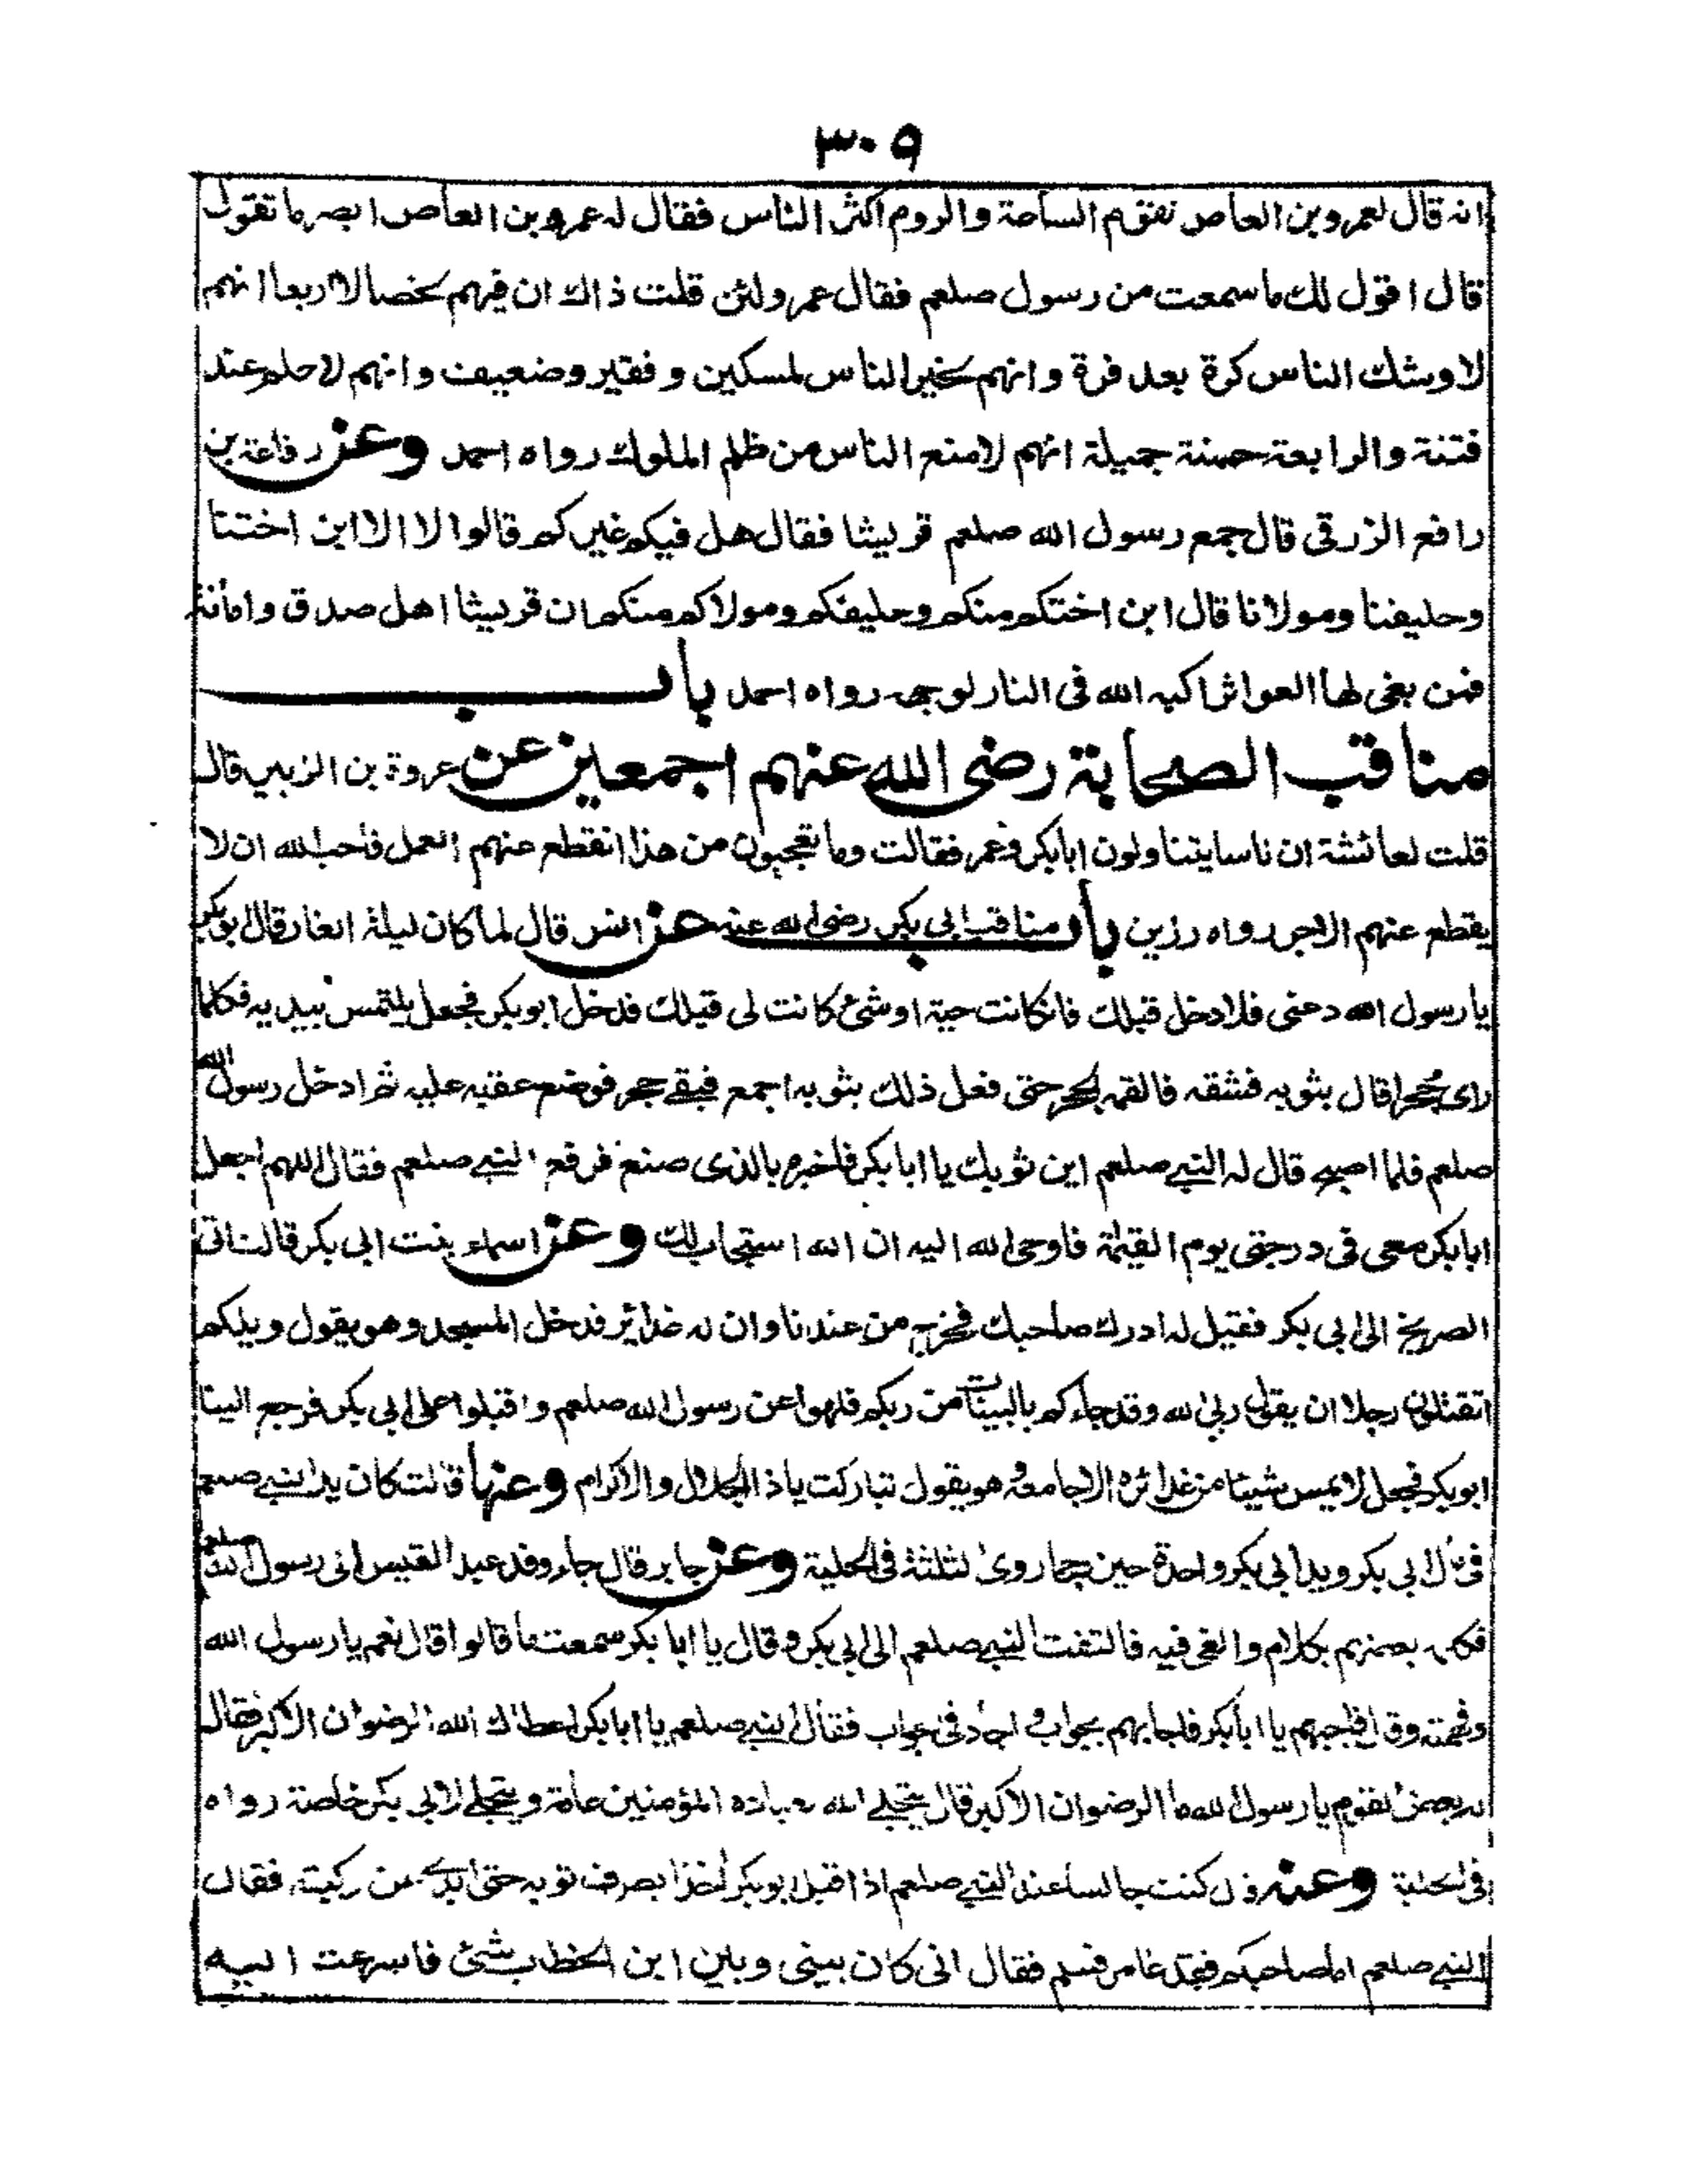 ٣٠٩
انه قال لعمرو بن العاص تقوم الساعة والروم اكثر الناس فقال له عمرو بن العاص ابصر ما تقول
قال اقول لك ما سمعت من رسول صلعم فقال عمرو لئن قلت ذاك ان فيهم لخصالا اربعا انهم
لاوشك الناس كرة بعد فرة وانهم لخير الناس لمسكين وفقير وضعيف وانهم لاحلم عند
فتنة والرابعة حسنة جميلة انهم لامنع الناس من ظلم الملوك رواه احمد وعن رفاعة بن
رافع الزرقى قال جمع رسول الله صلعم قريشا فقال هل فيكم غيركم قالوا لا الا ابن اختنا
وحليفنا ومولانا قال ابن اختكم منكم وحليفكم ومولاكم منكم ان قريشا اهل صدق وامانة
فمن بغى لها العواثر اكبه الله فى النار لوجهه رواه احمد باب
مناقب الصحابة رضى الله عنهم اجمعين عن عروة بن الزبير قال
قلت لعائشة ان ناسا يتناولون ابا بكر وعمر فقالت وما تعجبون من هذا انقطع عنهم العمل فاحب الله ان لا
يقطع عنهم الاجر رواه رزين باب مناقب ابى بكر رضى الله عنه عن انس قال لما كان ليلة الغار قال ابو بكر
يا رسول الله دعنى فلادخل قبلك فان كانت حية او شئ كانت لى قبلك فدخل ابو بكر فجعل يلتمس بيديه فكلما
راى جحرا قال بثوبه فشقه فالقمه الجحر حتى فعل ذلك بثوبه اجمع فبقى جحر فوضع عقبه عليه ثم ادخل رسول الله
صلعم فلما اصبح قال له النبى صلعم اين ثوبك يا ابا بكر فاخبره بالذى صنع فرفع النبى صلعم فقال اللهم اجعل
ابا بكر معى فى درجتى يوم القيمة فاوحى الله اليه ان الله استجاب لك وعن اسماء بنت ابى بكر قالت اتى
الصريخ الى ابى بكر فقيل له ادرك صاحبك فخرج من عندنا وان له غدائر فدخل المسجد وهو يقول ويلكم
اتقتلون رجلا ان يقول ربى الله وقد جاءكم بالبينات من ربكم فلهوا عن رسول الله صلعم واقبلوا على ابى بكر فرجع الينا
ابو بكر فجعل لا يمس شيئا من غدائره الا جا معه وهو يقول تباركت يا ذا الجلال والاكرام وعنها قالت كان يد النبى صلعم
فى مال ابى بكر ويد ابى بكر واحدة حين روى الثلثة فى الحلية وعن جابر قال جاء وفد عبد القيس الى رسول الله صلعم
بعضهم بكلام والغى فيه فالتفت النبى صلعم الى ابى بكر وقال يا ابا بكر سمعت ما قالوا قال نعم يا رسول الله
وفهمته وقال فاجبهم يا ابا بكر فاجابهم بجواب واجاد فى جواب فقال النبى صلعم يا ابا بكر اعطاك الله الرضوان الاكبر فقال
له بعض القوم يا رسول الله وما الرضوان الاكبر قال يتجلى الله لعباده المؤمنين عامة ويتجلى لابى بكر خاصة رواه
فى الحلية وعنه قال كنت جالسا عند النبى صلعم اذا اقبل ابو بكر اخذا بطرف ثوبه حتى ابدى عن ركبته فقال
النبى صلعم اما صاحبكم فقد غامر فسلم فقال انى كان بينى وبين ابن الخطاب شئ فاسرعت اليه